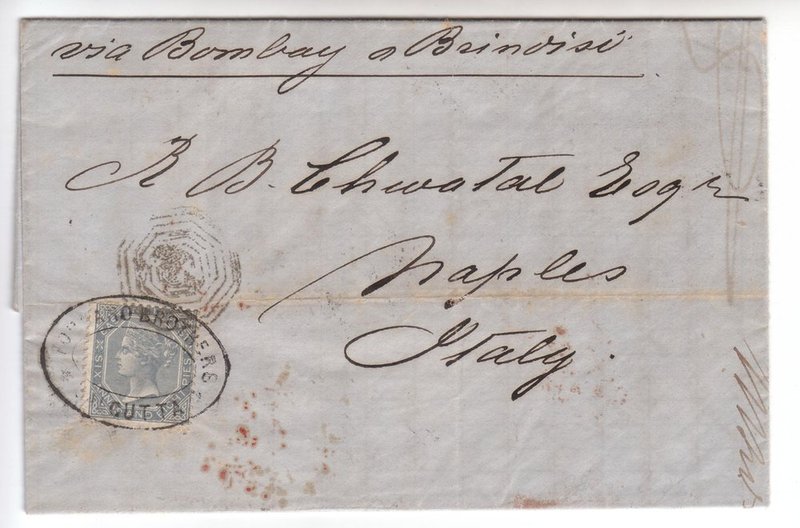 via Bombay & Brindisi
R B. Chwatal Esqr
Naples
Italy.
BROTHERS
CUTTA